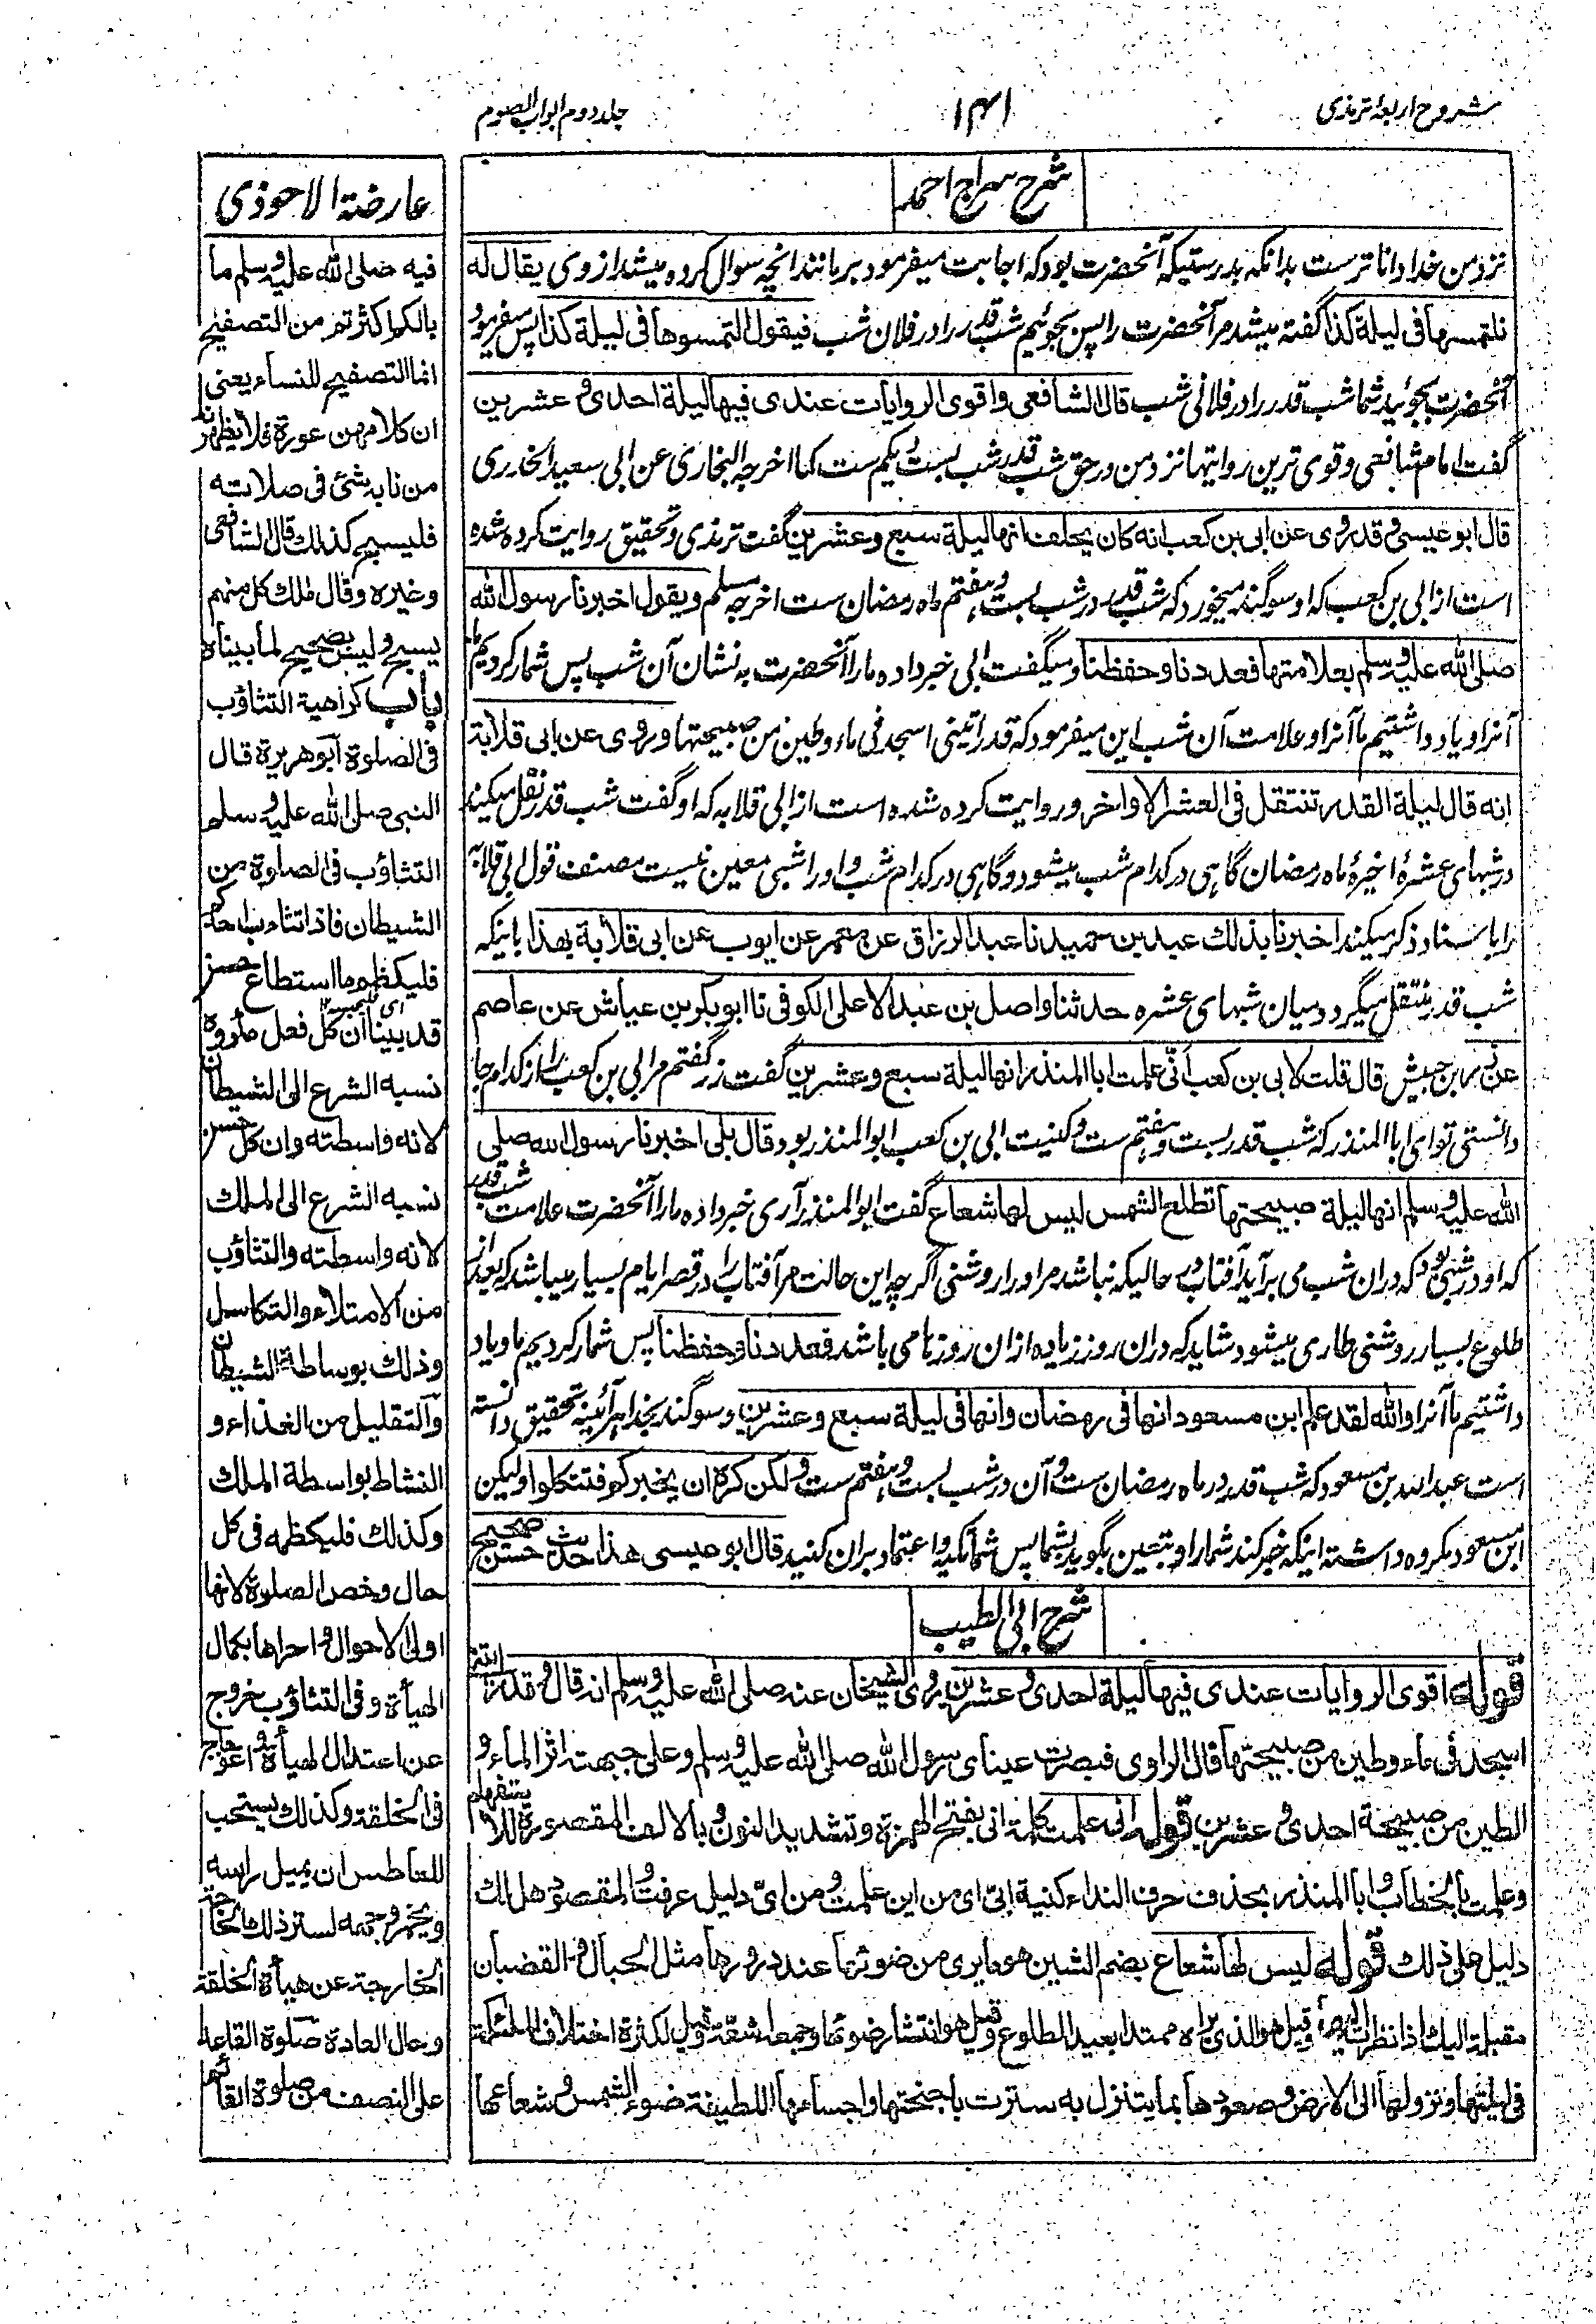 شروح اربعۂ ترمذی
۱۴۱
جلد دوم ابواب الصوم
شرح سراج احمد
نزد من خدا داناترست بدانکه بدرستیکه آنحضرت بود که اجابت میفرمود بر مانند انچه سوال کرده میشد از وی یقال له
نلتمسها فی لیلة کذا گفته میشد مر آنحضرت را پس بجوئیم شب قدر را در فلان شب فیقول التمسوها فی لیلة کذا پس میفرمود
آنحضرت بجوئید شما شب قدر را در فلانی شب قال الشافعی واقوی الروایات عندی فیها لیلة احدی و عشرین
گفت امام شافعی وقوی ترین روایتها نزد من در حق شب قدر شب بست ویکم ست کما اخرجه البخاری عن ابی سعید الخدری
قال ابو عیسی وقد روی عن ابی بن کعب انه کان یحلف انها لیلة سبع وعشرین گفت ترمذی وتحقیق روایت کرده شده
است از ابی بن کعب که او سوگند میخورد که شب قدر در شب بست وهفتم ماه رمضان ست اخرجه مسلم ویقول اخبرنا رسول الله
صلی الله علیه وسلم بعلامتها فعددنا وحفظنا ومیگفت ابی خبر داده ما را آنحضرت به نشان آن شب پس شمار کردیم ما
آنرا ویاد داشتیم ما آنرا وعلامت آن شب این میفرمود که قد رأیتنی اسجد فی ماء وطین من صبیحتها وروی عن ابی قلابة
انه قال لیلة القدر تنتقل فی العشر الاواخر وروایت کرده شده است از ابی قلابه که او گفت شب قدر نقل میکند
در شبهای عشرۂ اخیرۂ ماه رمضان گاهی در کدام شب میشود وگاهی در کدام شب واو را شبی معین نیست مصنف قول ابی قلابه
را باسناد ذکر میکند اخبرنا بذلک عبد بن حمید نا عبد الرزاق عن معمر عن ایوب عن ابی قلابة بهذا باینکه
شب قدر منتقل میگردد میان شبهای عشره حدثنا واصل بن عبد الاعلی الکوفی نا ابو بکر بن عیاش عن عاصم
عن زر بن حبیش قال قلت لابی بن کعب انّی علمت ابا المنذر انها لیلة سبع وعشرین گفت زر گفتم مر ابی بن کعب را از کدام جا
دانستی تو ای ابا المنذر که شب قدر بست وهفتم ست وکنیت ابی بن کعب ابو المنذر بود قال بلی اخبرنا رسول الله صلی
الله علیه وسلم انها لیلة صبیحتها تطلع الشمس لیس لها شعاع گفت ابو المنذر آری خبر داده ما را آنحضرت علامت شب قدر
که او در شبی بود که دران شب می برآید آفتاب در حالیکه نباشد مر او را روشنی اگرچه این حالت مر آفتاب را در قصر ایام بسیار میباشد که بعد از
طلوع بسیار روشنی طاری میشود شاید که دران روز زیاده ازان روزها می باشد فعددنا وحفظنا پس شمار کردیم ما ویاد
داشتیم ما آنرا والله لقد علم ابن مسعود انها فی رمضان وانها فی لیلة سبع وعشرین وسوگند بخدا هرآئینه تحقیق دانسته
است عبد الله بن مسعود که شب قدر در ماه رمضان ست وآن در شب بست وهفتم ست ولکن کره ان یخبرکم فتتکلوا ولیکن
ابن مسعود مکروه داشته اینکه خبر کند شما را وبتعین بگوید بشما پس شما تکیه واعتماد بران کنید قال ابو عیسی هذا حدیث حسن صحیح
شرح ابی الطیب
قوله اقوی الروایات عندی فیها لیلة احدی وعشرین یروی الشیخان عنه صلی الله علیه وسلم انه قال وقد رایتنی
اسجد فی ماء وطین من صبیحتها قال الراوی فبصرت عینای رسول الله صلی الله علیه وسلم وعلی جبهته اثر الماء و
الطین من صبیحة احدی وعشرین قوله انی علمت کلمة انی بفتح الهمزة وتشدید النون وبالالف المقصورة للاستفهام
وعلمت بالخطاب وابا المنذر بحذف حرف النداء کنیة ابیّ ای من این علمت ومن ایّ دلیل عرفت والمقصود هل لک
دلیل علی ذلک قوله لیس لها شعاع بضم الشین هو ما یری من ضوئها عند ذرورها مثل الحبال والقضبان
مقبلة الیک اذا نظرت الیها وقیل هو الذی تراه ممتدا بعید الطلوع وقیل هو انتشار ضوئها وجمعه اشعّة وقیل لکثرة اختلاف الملئکة
فی لیلتها ونزولها الی الارض وصعودها بما یتنزل به سترت باجنحتها واجسامها اللطیفة ضوء الشمس وشعاعها
عارضة الاحوذی
فیه صلی الله علیه وسلم ما
بالکم اکثرتم من التصفیح
انما التصفیح للنساء یعنی
ان کلامهن عورة فلا یظهرنه
من نابه شیٔ فی صلاته
فلیسبح کذلک قال الشافعی
وغیره وقال ملک کل منهم
یسبح ولیس بصحیح لما بیناه
باب کراهیة التثاؤب
فی الصلوة ابو هریرة قال
النبی صلی الله علیه وسلم
التثاؤب فی الصلوة من
الشیطان فاذا تثاءب احدکم
فلیکظم ما استطاع حسن
قد بینا ان کل فعل مکروه
نسبه الشرع الی الشیطان
لانه واسطته وان کل حسن
نسبه الشرع الی الملک
لانه واسطته والتثاؤب
من الامتلاء والتکاسل
وذلک بوساطة الشیطان
والتقلیل من الغذاء و
النشاط بواسطة الملک
وکذلک فلیکظمه فی کل
حال وخص الصلوة لانها
اولی الاحوال واحراها بکمال
الهیأة وفی التثاؤب خروج
عن اعتدال الهیأة واعوجاج
فی الخلقة وکذلک یستحب
للعاطس ان یمیل راسه
ویخمر وجهه لستر ذلک
الخارجة عن هیأة الخلقة
وحال العادة صلوة القاعد
علی النصف من صلوة القائم